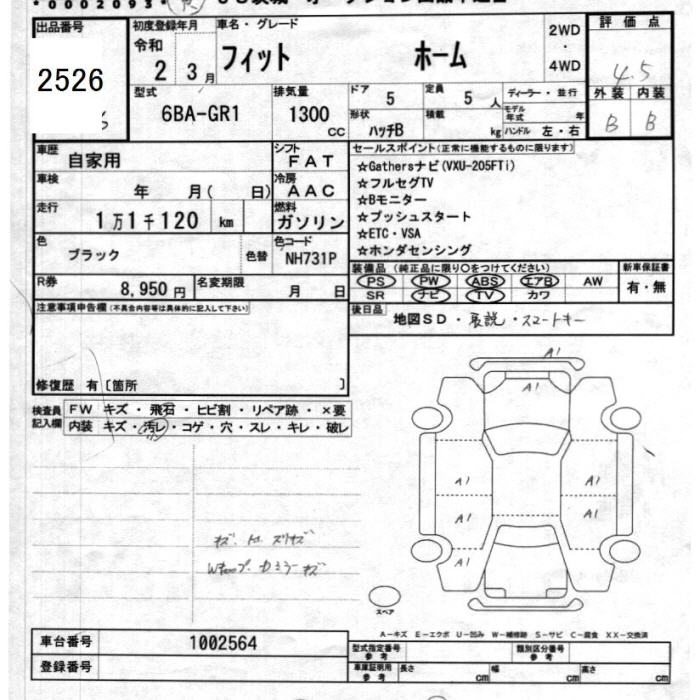 *0002093*
出品番号 初度登録年月 車名・グレード 2WD ・ 4WD 評価点
2526 令和 2 3月 フィット ホーム 4.5
型式 排気量 ドア 5 定員 5人 ディーラー・並行 外装 内装
6BA-GR1 1300 CC 形状 ハッチB 積載 kg モデル年式 年 ハンドル 左・右 B B
車歴 自家用 シフト FAT セールスポイント(正常に機能するものに限ります)
車検 年 月( 日) 冷房 AAC ☆Gathersナビ(VXU-205FTi)
☆フルセグTV
走行 1万1千120 km 燃料 ガソリン ☆Bモニター
☆プッシュスタート
☆ETC・VSA
色 ブラック 色替 色コード NH731P ☆ホンダセンシング
R券 8,950円 名変期限 月 日 装備品(純正品に限り○をつけてください) 新車保証書
PS PW ABS エアB AW 有・無
SR ナビ TV カワ
注意事項申告欄(不具合内容等は具体的に記入して下さい) 後日品 地図SD・取説・スマートキー
修復歴 有〔箇所 〕
検査員記入欄 FW キズ・飛石・ヒビ割・リペア跡・×要
内装 キズ・汚レ・コゲ・穴・スレ・キレ・破レ
A1
A1
A1 A1
A1 A1
A1
スペア
A-キズ E-エクボ U-凹み W-補修跡 S-サビ C-腐食 XX-交換済
車台番号 1002564 型式指定番号 参考 類別区分番号 参考
登録番号 車庫証明用 参考 長さ cm 幅 cm 高さ cm